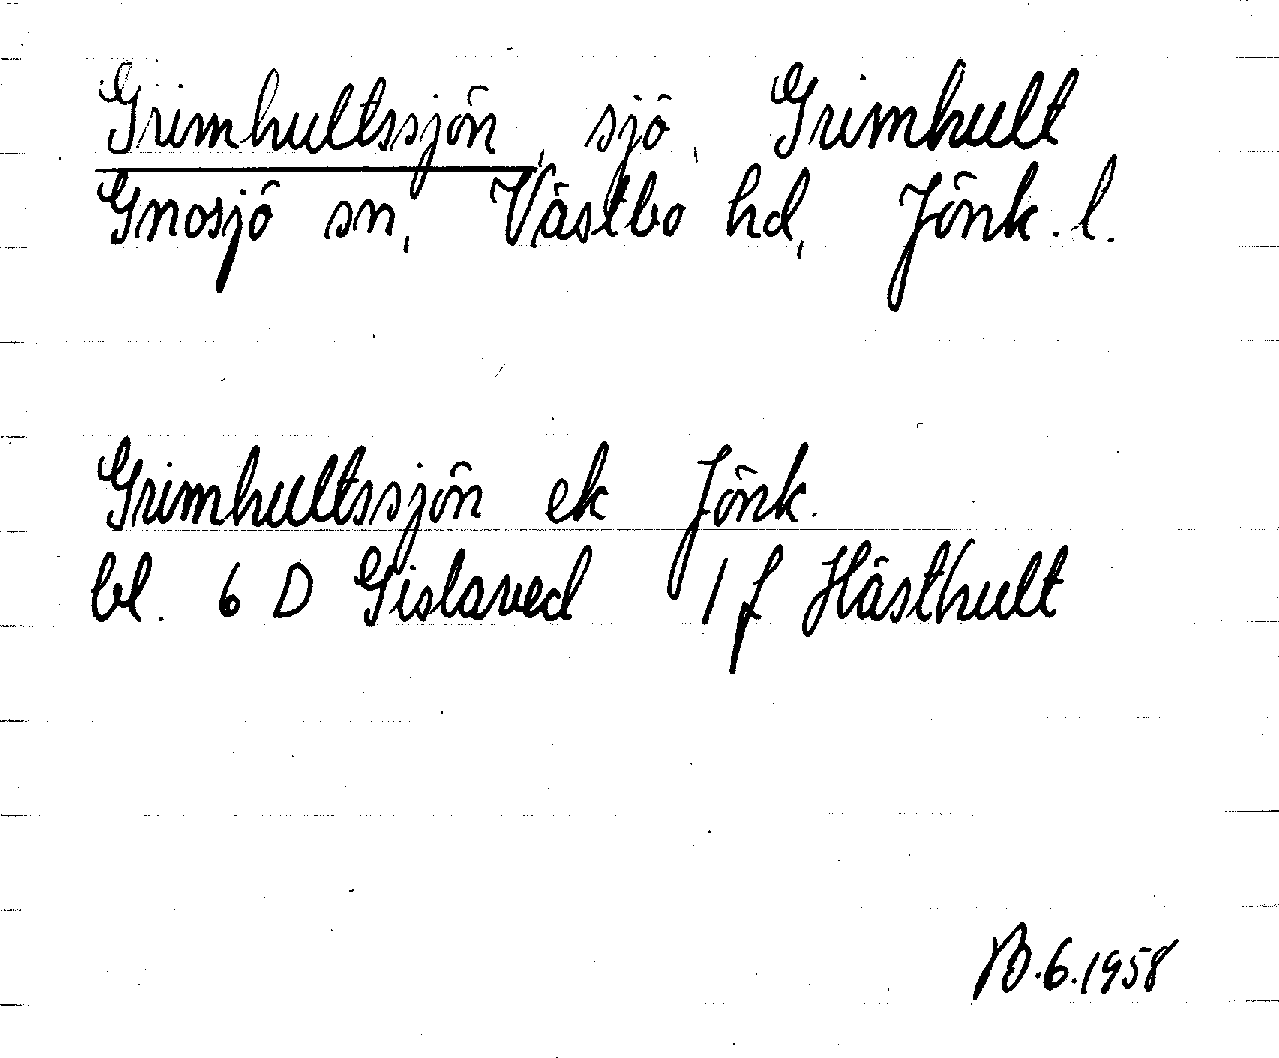 Grimhultssjön, sjö, Grimhult
Gnosjö sn, Västbo hd, Jönk. l.
Grimhultssjön ek Jönk.
bl. 6 D Gislaved 1 f Hästhult
6.1958